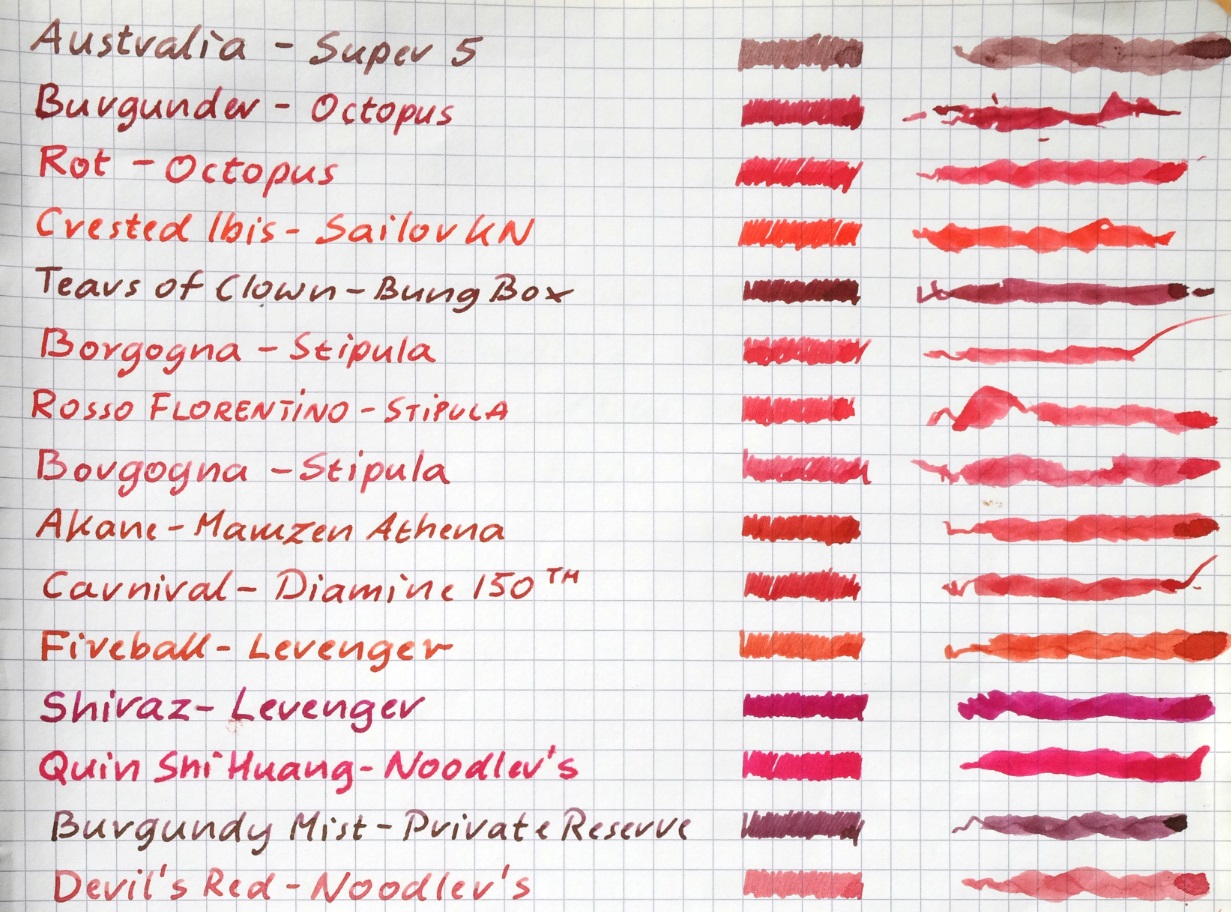 Australia - Super 5
Burgunder - Octopus
Rot - Octopus
Crested Ibis - Sailor KN
Tears of Clown - Bung Box
Borgogna - Stipula
ROSSO FLORENTINO - STIPULA
Borgogna - Stipula
Akane - Maruzen Athena
Carnival - Diamine 150TH
Fireball - Levenger
Shiraz - Levenger
Quin Shi Huang - Noodler's
Burgundy Mist - Private Reserve
Devil's Red - Noodler's